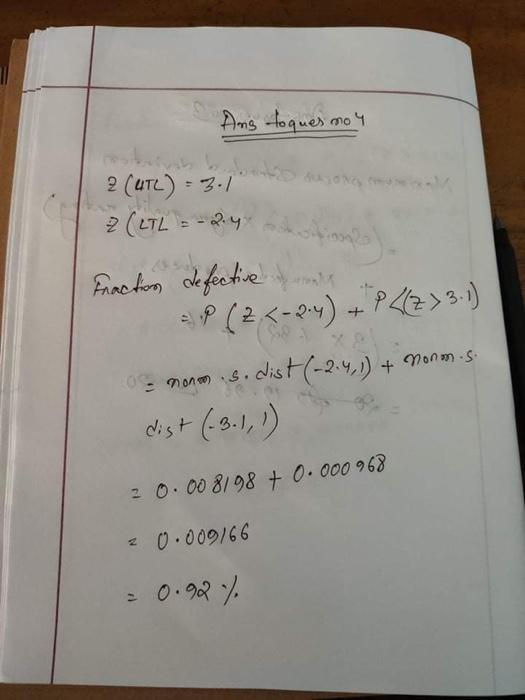 Ans to ques no 4
Z (UTL) = 3.1
Z (LTL = -2.4
Fraction defective
= P (Z < -2.4) + P<(Z > 3.1)
= norm.s.dist(-2.4,1) + norm.s.
dist (-3.1,1)
= 0.008198 + 0.000968
= 0.009166
= 0.92 %